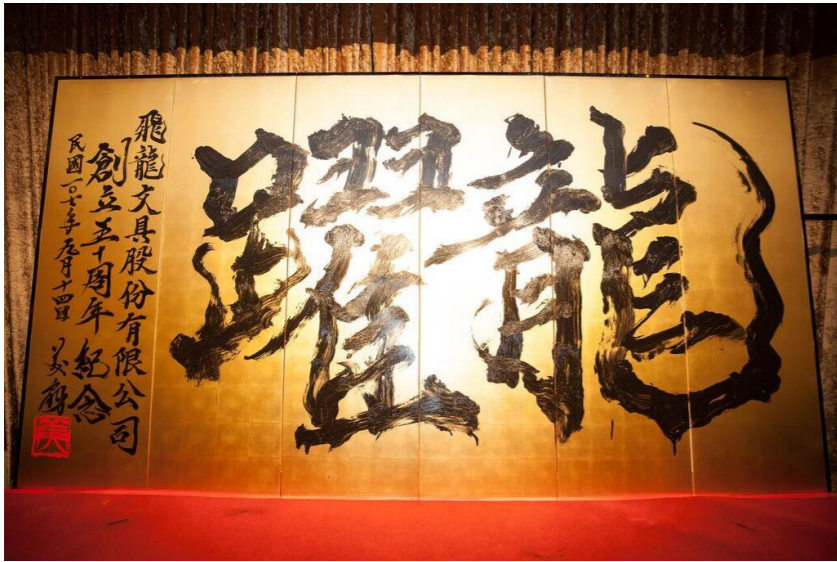 龍躍
飛龍文具股份有限公司
創立五十周年 紀念
民國一〇七年月十四日 美
美